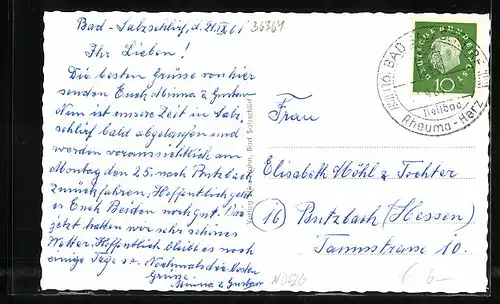 Bad-Salzschlirf, d. 21/IX 61
36364
Ihr Lieben!
Die besten Grüsse von hier
senden Euch Minna & Gustav
Nun ist unsere Zeit in Salz,
schlirf bald abgelaufen und
werden voraussichtlich am
Montag den 25. nach Butzbach
zurückfahren, Hoffentlich geht
es Euch Beiden noch gut. Bis
jetzt hatten wir sehr schönes
Wetter. Hoffentlich bleibt es noch
einige Tage so. Nochmals die besten
Grüsse
Minna & Gustav
Bad Salzschlirf
DEUTSCHE BUNDESPOST
10
BAD
Heilbad
Rheuma - Herz
Frau
Elisabeth Möhl & Tochter
(16) Butzbach (Hessen)
Taunusstrasse 10.